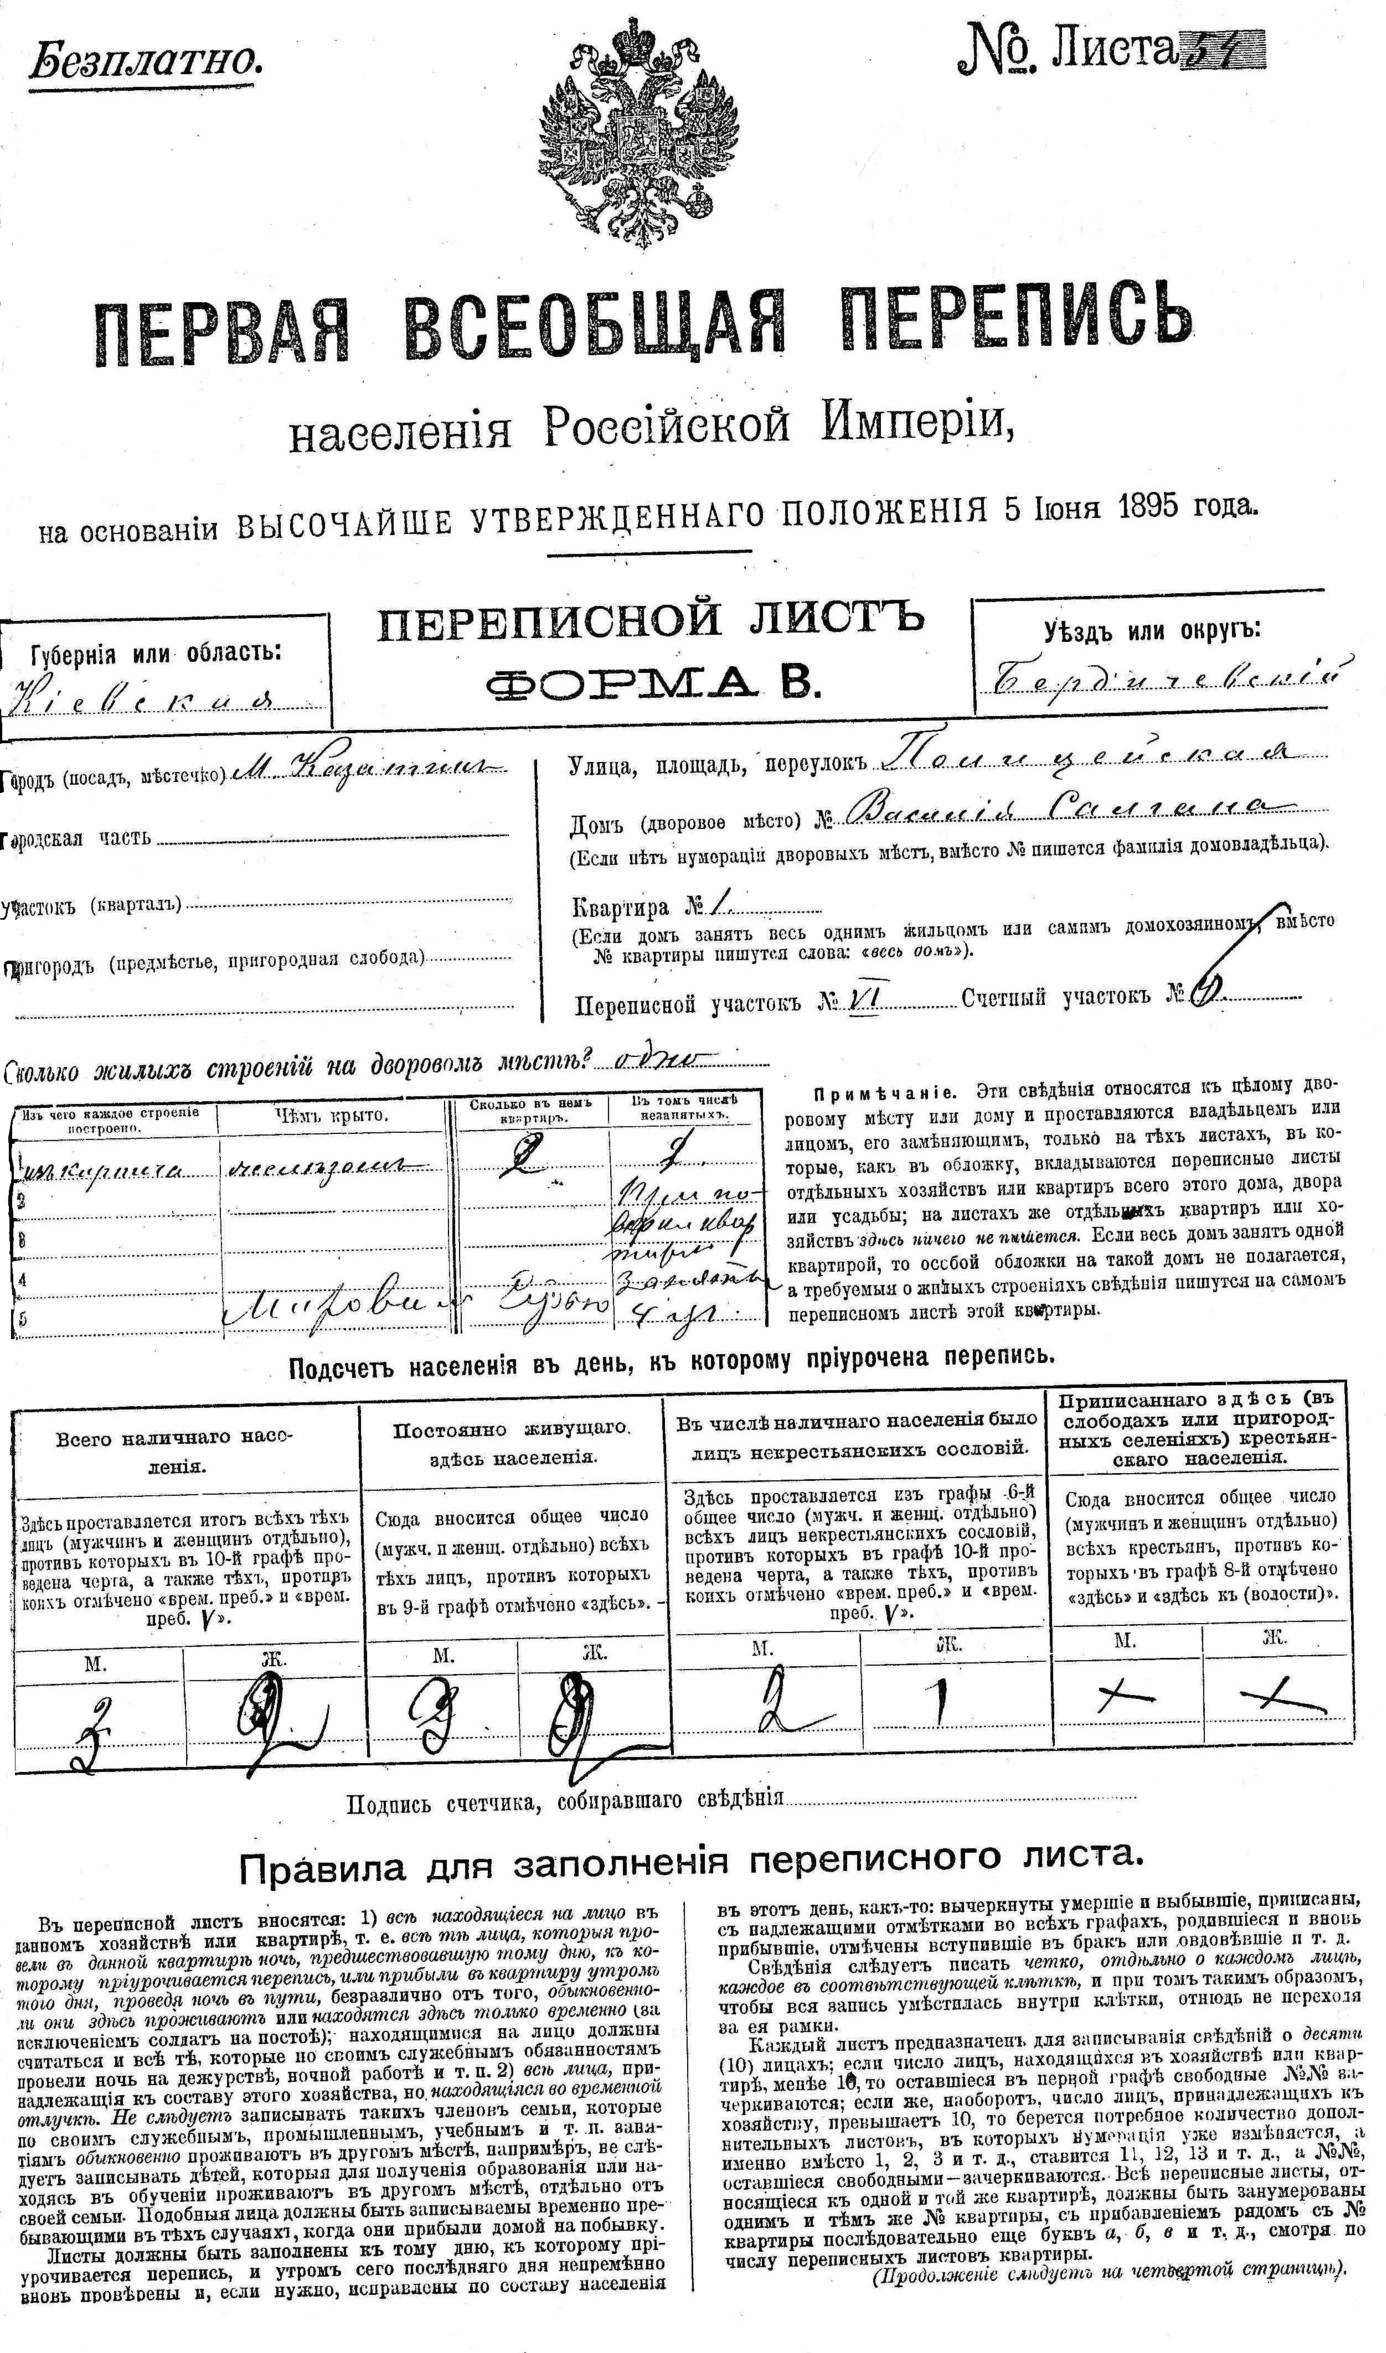 Безплатно.
№. Листа 54
ПЕРВАЯ ВСЕОБЩАЯ ПЕРЕПИСЬ
населенія Россійской Имперіи,
на основаніи ВЫСОЧАЙШЕ УТВЕРЖДЕННАГО ПОЛОЖЕНІЯ 5 Іюня 1895 года.
ПЕРЕПИСНОЙ ЛИСТЪ
ФОРМА В.
Губернія или область:
Кіевская
Уѣздъ или округъ:
Бердичевскій
Городъ (посадъ, мѣстечко) М. Казатинъ
Городская часть
Участокъ (кварталъ)
Пригородъ (предмѣстье, пригородная слобода)
Улица, площадь, переулокъ Полицейская
Домъ (дворовое мѣсто) № Василія Салгана
(Если нѣтъ нумораціи дворовыхъ мѣстъ, вмѣсто № пишется фамилія домовладѣльца).
Квартира № 1.
(Если домъ занятъ весь однимъ жильцомъ или самимъ домохозяиномъ, вмѣсто
№ квартиры пишутся слова: «весь домъ»).
Переписной участокъ № VI Счетный участокъ №
Сколько жилыхъ строеній на дворовомъ мѣстѣ? одно
Изъ чего каждое строеніе
построено.
Чѣмъ крыто.
Сколько въ немъ
квартиръ.
Въ томъ числѣ
незанятыхъ.
1 изъ кирпича желѣзомъ 2 1.
3 При по-
8 вѣрки квар
тиры
4 заняты
5
Примѣчаніе. Эти свѣдѣнія относятся къ цѣлому дво-
ровому мѣсту или дому и проставляются владѣльцемъ или
лицомъ, его замѣняющимъ, только на тѣхъ листахъ, въ ко-
торые, какъ въ обложку, вкладываются переписные листы
отдѣльныхъ хозяйствъ или квартиръ всего этого дома, двора
или усадьбы; на листахъ же отдѣльныхъ квартиръ или хо-
зяйствъ здѣсь ничего не пишется. Если весь домъ занятъ одной
квартирой, то особой обложки на такой домъ не полагается,
а требуемыя о жилыхъ строеніяхъ свѣдѣнія пишутся на самомъ
переписномъ листѣ этой квартиры.
Подсчетъ населенія въ день, къ которому пріурочена перепись.
Всего наличнаго насе-
ленія.
Здѣсь проставляется итогъ всѣхъ тѣхъ
лицъ (мужчинъ и женщинъ отдѣльно),
противъ которыхъ въ 10-й графѣ про-
ведена черта, а также тѣхъ, противъ
коихъ отмѣчено «врем. преб.» и «врем.
преб. V».
М. Ж.
3 2
Постоянно живущаго
здѣсь населенія.
Сюда вносится общее число
(мужч. и женщ. отдѣльно) всѣхъ
тѣхъ лицъ, противъ которыхъ
въ 9-й графѣ отмѣчено «здѣсь».
М. Ж.
3 2
Въ числѣ наличнаго населенія было
лицъ некрестьянскихъ сословій.
Здѣсь проставляется изъ графы 6-й
общее число (мужч. и женщ. отдѣльно)
всѣхъ лицъ некрестьянскихъ сословій,
противъ которыхъ въ графѣ 10-й про-
ведена черта, а также тѣхъ, противъ
коихъ отмѣчено «врем. преб.» и «врем.
преб. V».
М. Ж.
2 1
Приписаннаго здѣсь (въ
слободахъ или пригород-
ныхъ селеніяхъ) крестьян-
скаго населенія.
Сюда вносится общее число
(мужчинъ и женщинъ отдѣльно)
всѣхъ крестьян, противъ ко-
торыхъ въ графѣ 8-й отмѣчено
«здѣсь» и «здѣсь къ (волости)».
М. Ж.
Подпись счетчика, собиравшаго свѣдѣнія
Правила для заполненія переписного листа.
Въ переписной листъ вносятся: 1) всѣ находящіеся на лицо въ
данномъ хозяйствѣ или квартирѣ, т. е. всѣ тѣ лица, которыя про-
вели въ данной квартирѣ ночь, предшествовавшую тому дню, къ ко-
торому пріурочивается перепись, или прибыли въ квартиру утромъ
того дня, проведя ночь въ пути, безразлично отъ того, обыкновенно-
ли они здѣсь проживаютъ или находятся здѣсь только временно (за
исключеніемъ солдатъ на постоѣ); находящимися на лицо должны
считаться и всѣ тѣ, которые по своимъ служебнымъ обязанностямъ
провели ночь на дежурствѣ, ночной работѣ и т. п. 2) всѣ лица, при-
надлежащія къ составу этого хозяйства, но находящіяся во временной
отлучкѣ. Не слѣдуетъ записывать такихъ членовъ семьи, которые
по своимъ служебнымъ, промышленнымъ, учебнымъ и т. п. заня-
тіямъ обыкновенно проживаютъ въ другомъ мѣстѣ, напримѣръ, не слѣ-
дуетъ записывать дѣтей, которыя для полученія образованія или на-
ходясь въ обученіи проживаютъ въ другомъ мѣстѣ, отдѣльно отъ
своей семьи. Подобныя лица должны быть записываемы временно пре-
бывающими въ тѣхъ случаяхъ, когда они прибыли домой на побывку.
Листы должны быть заполнены къ тому дню, къ которому прі-
урочивается перепись, и утромъ сего послѣдняго дня непремѣнно
вновь провѣрены и, если нужно, исправлены по составу населенія
въ этотъ день, какъ-то: вычеркнуты умершіе и выбывшіе, приписаны,
съ надлежащими отмѣтками во всѣхъ графахъ, родившіеся и вновь
прибывшіе, отмѣчены вступившіе въ бракъ или овдовѣвшіе и т. д.
Свѣдѣнія слѣдуетъ писать четко, отдѣльно о каждомъ лицѣ,
каждое въ соотвѣтствующей клѣткѣ, и при томъ такимъ образомъ,
чтобы вся запись умѣстилась внутри клѣтки, отнюдь не переходя
за ея рамки.
Каждый листъ предназначенъ для записыванія свѣдѣній о десяти
(10) лицахъ; если число лицъ, находящихся въ хозяйствѣ или квар-
тирѣ, менѣе 10, то оставшіеся въ первой графѣ свободные №№ за-
черкиваются; если же, наоборотъ, число лицъ, принадлежащихъ къ
хозяйству, превышаетъ 10, то берется потребное количество допол-
нительныхъ листовъ, въ которыхъ нумерація уже измѣняется, а
именно вмѣсто 1, 2, 3 и т. д., ставится 11, 12, 13 и т. д., а №№,
оставшіеся свободными—зачеркиваются. Всѣ переписные листы, от-
носящіеся къ одной и той же квартирѣ, должны быть занумерованы
однимъ и тѣмъ же № квартиры, съ прибавленіемъ рядомъ съ №
квартиры послѣдовательно еще буквъ а, б, в и т. д., смотря по
числу переписныхъ листовъ квартиры.
(Продолженіе слѣдуетъ на четвертой страницѣ).